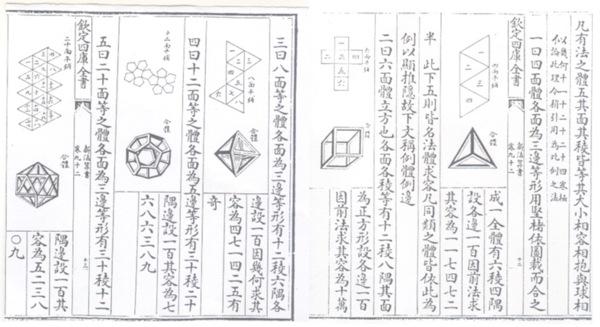 凡有法之體五其面其稜皆等其大小相容相抱與球相
欽定四庫全書
新法算書
卷九十二
一曰四面體各面為三邊等形用堅楮依圖裁而合之
四面平鋪
一
二
三
四
合體
成一全體有六稜四隅
設各邊一百因前法求
其容為一一七四七二
半 此下五則皆名法體求容凡同類之體皆依此為
例以顯推隱故下文稱例體例邊
二曰六面體立方也各面各稜等有十二稜八隅其面
六面平鋪
合體
為正方形設各邊一百
因前法求其容為十萬
三曰八面等之體各面為三邊等形有十二稜六隅各
八面平鋪
合體
邊設一百因幾何求其
容為四七一四二五有
奇
四曰十二面等之體各面為五邊等形有三十稜二十
十二面平鋪
合體
隅邊設一百其容為七
六八六三八九
五曰二十面等之體各面為三邊等形有三十稜十二
欽定四庫全書
新法算書
卷九十二
二十面平鋪
合體
隅邊設一百其
容為五二三八
〇九